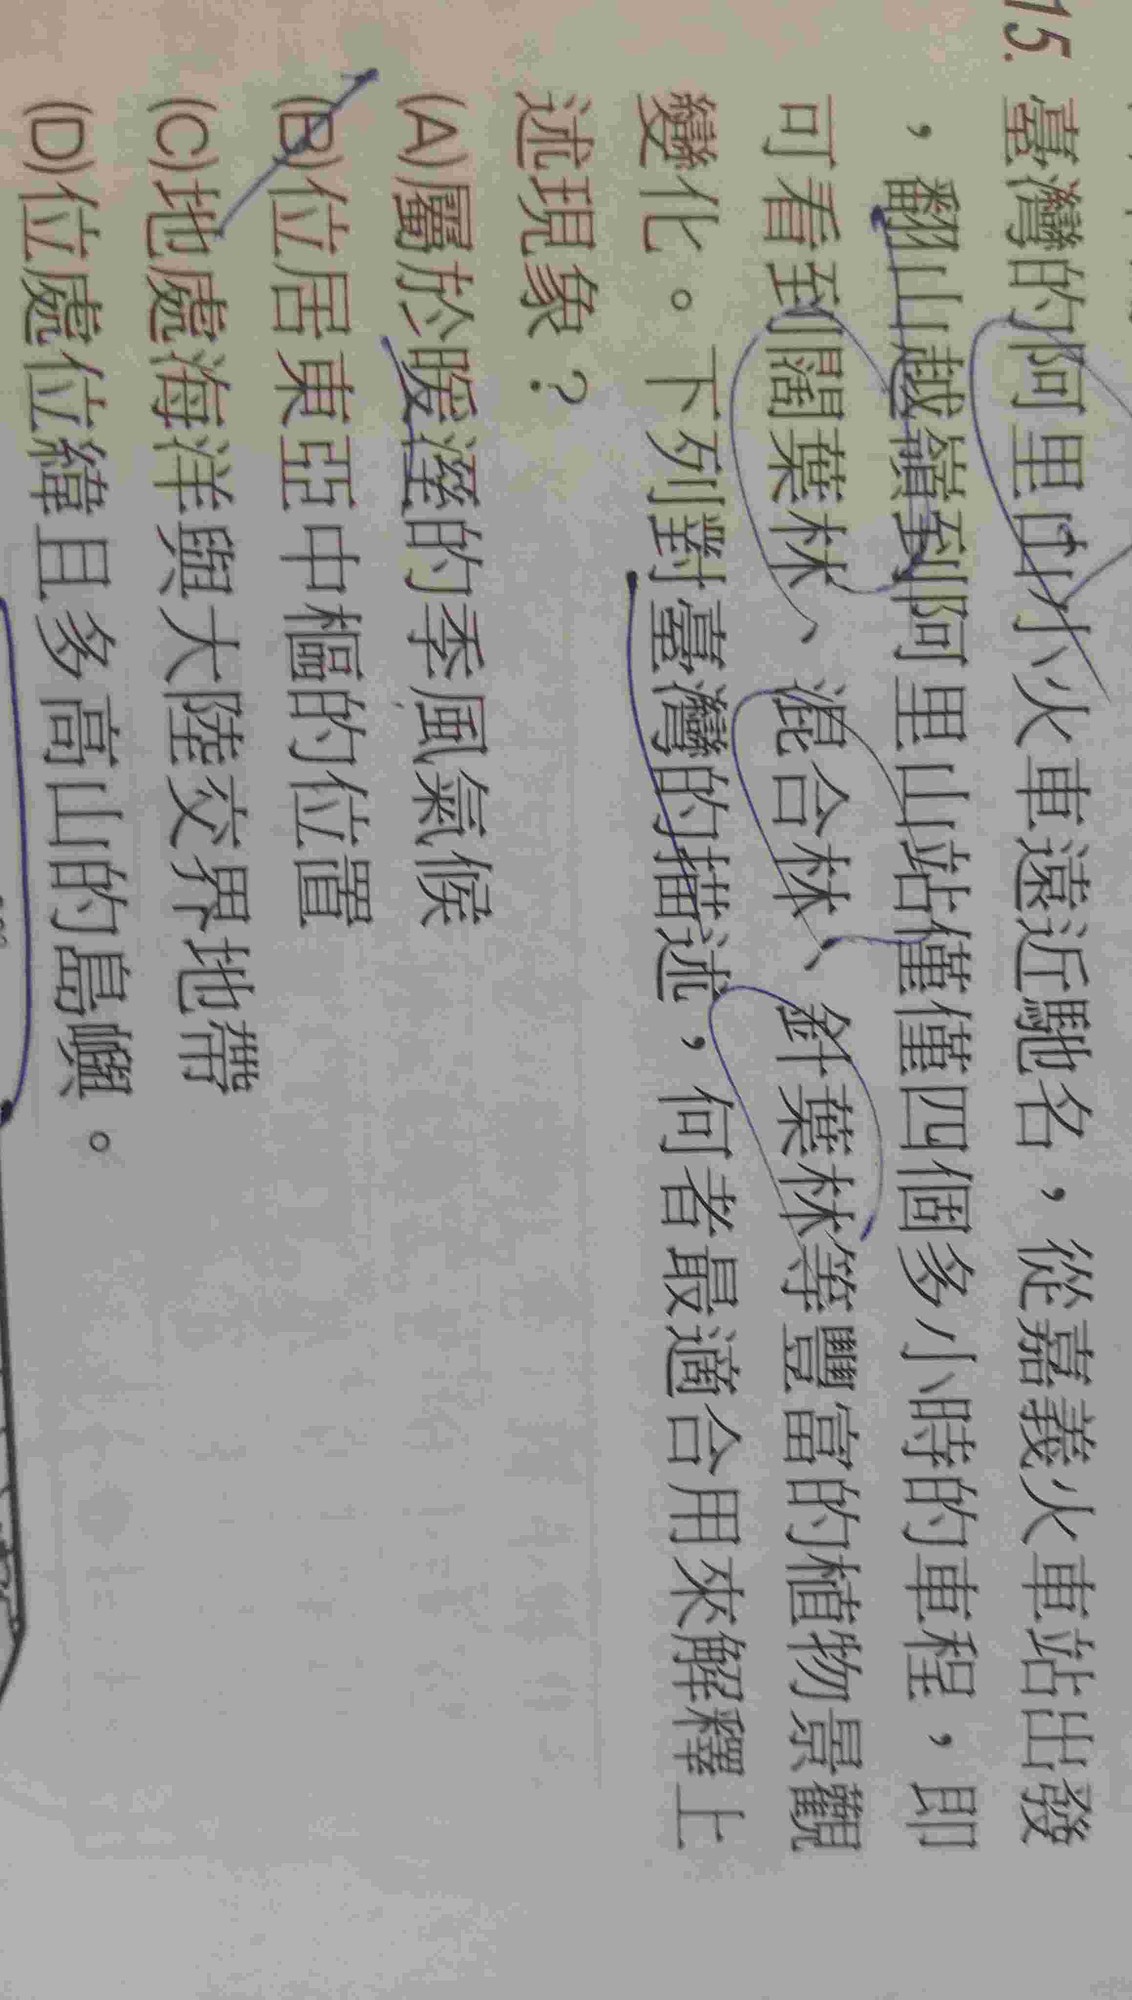 15. 臺灣的阿里山小火車遠近馳名，從嘉義火車站出發
，翻山越嶺到阿里山站僅僅四個多小時的車程，即
可看到闊葉林、混合林、針葉林等豐富的植物景觀
變化。下列對臺灣的描述，何者最適合用來解釋上
述現象？
(A)屬於暖溼的季風氣候
(B)位居東亞中樞的位置
(C)地處海洋與大陸交界地帶
(D)位處低緯且多高山的島嶼。